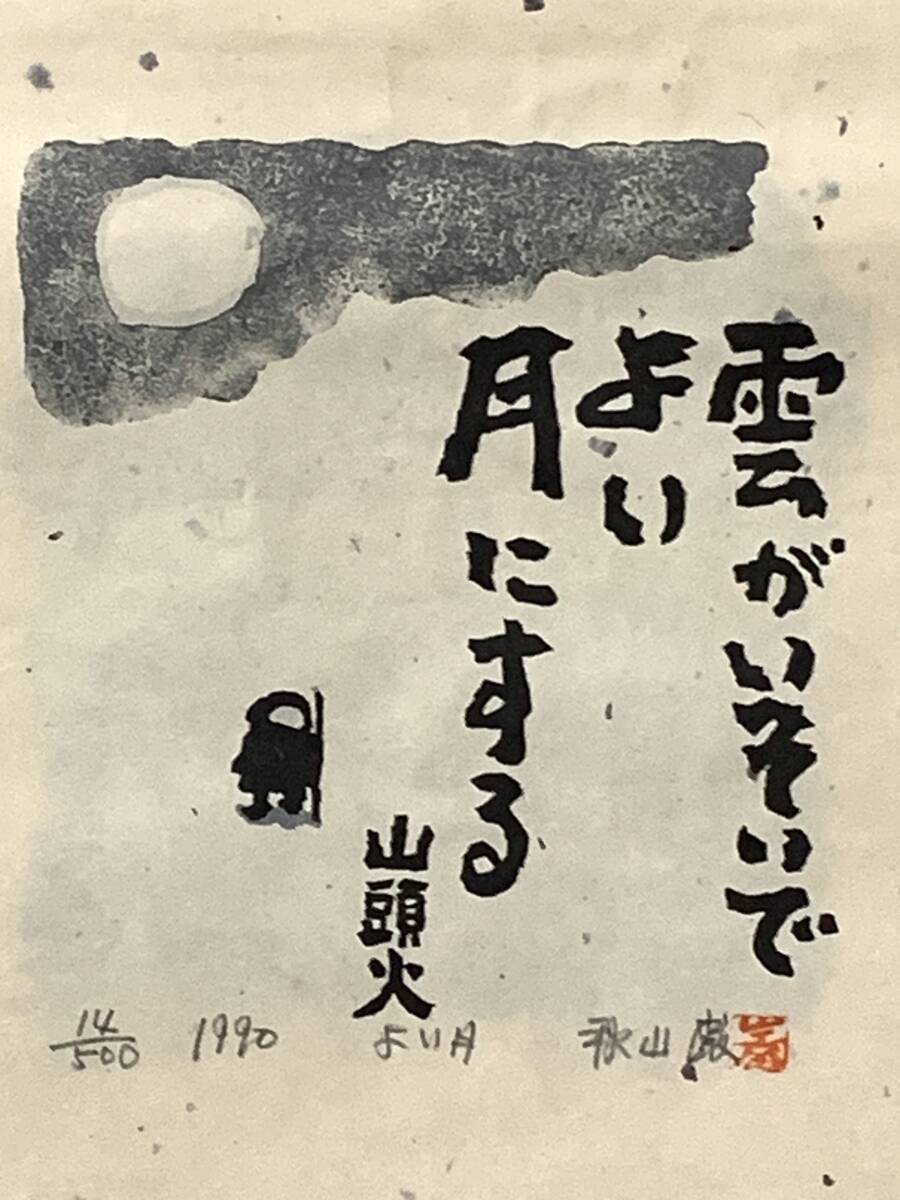 雲がいそいで
よい
月にする
山頭火
14/500 1990 よい月 秋山巌